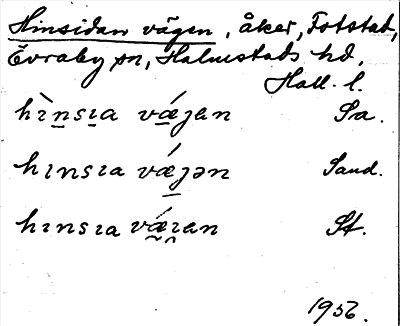 Hinsidan vägen, åker, Fotstad,
Övraby sn, Halmstads hd,
Hall. l.
hìnsıa vǽȷan Sa.
hınsıa vǽȷən Sand.
hınsıa vǽı̯an St.
1956.